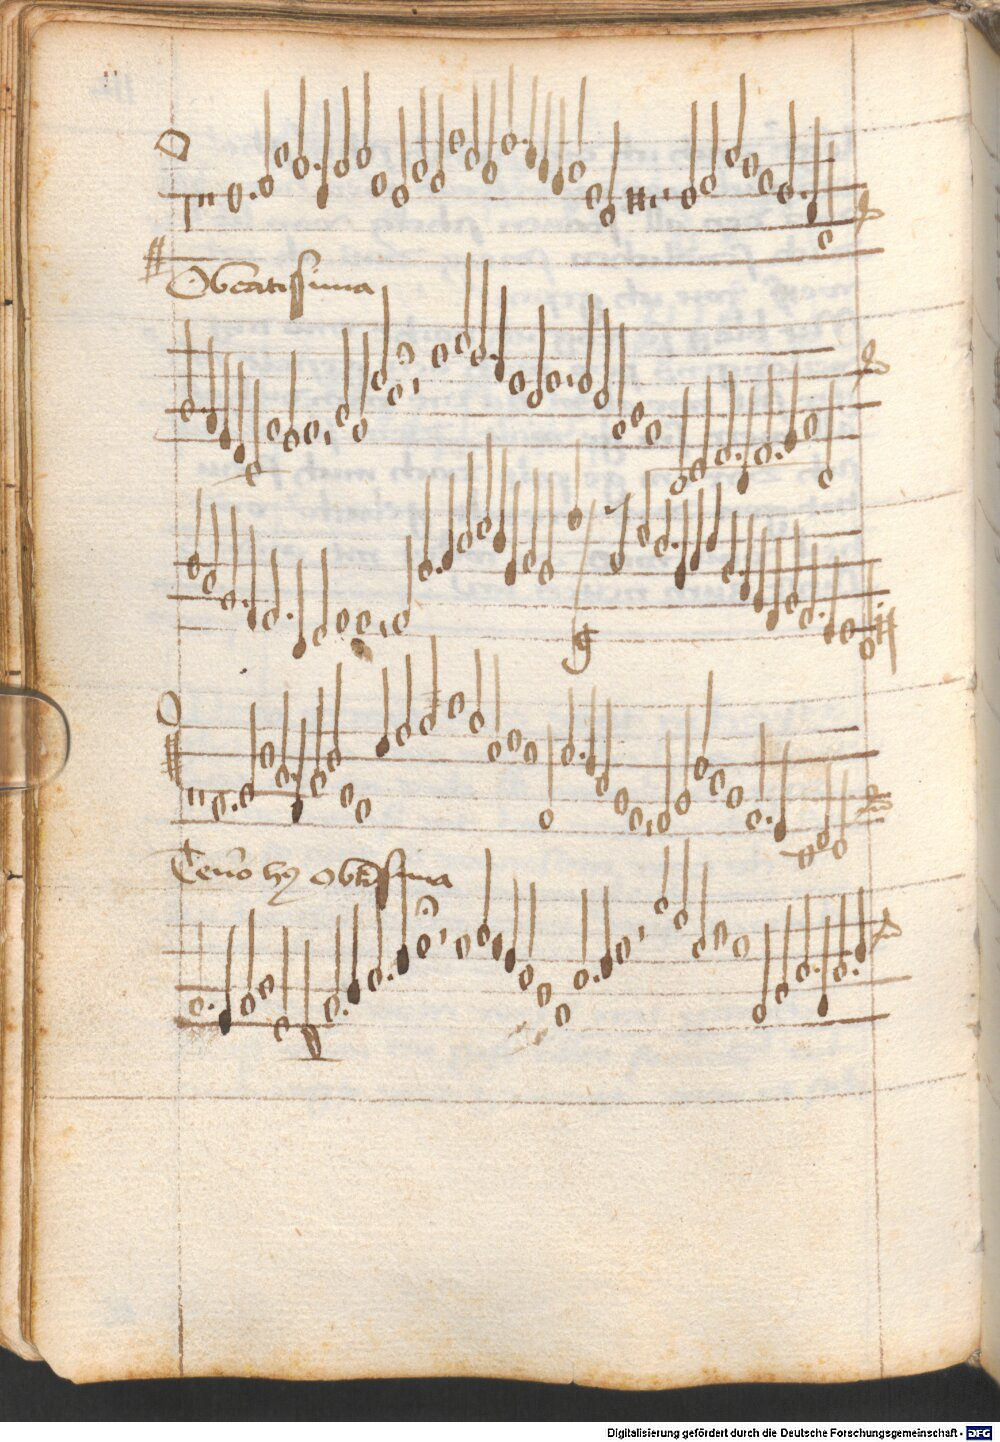 Obcatissima
Tenor hui9 obtissima
Digitalisierung gefördert durch die Deutsche Forschungsgemeinschaft - DFG